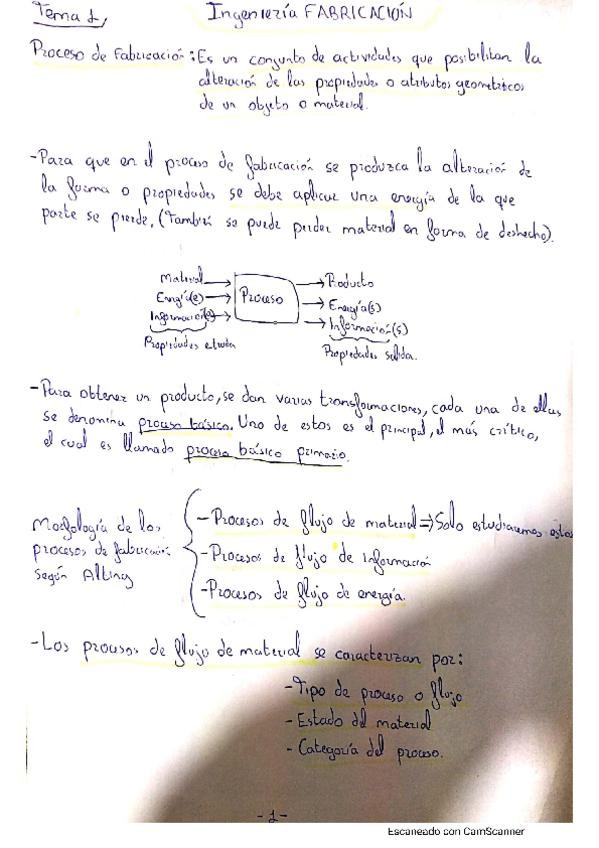 Tema 1,
Ingeniería FABRICACIÓN
Proceso de Fabricación: Es un conjunto de actividades que posibilitan la
alteración de las propiedades o atributos geométricos
de un objeto o material.
-Para que en el proceso de fabricación se produzca la alteración de
la forma o propiedades se debe aplicar una energía de la que
parte se pierde, (También se puede perder material en forma de deshecho).
Material → Proceso → Producto
Energía(e) → → Energía(s)
Información(e) → → Información(s)
Propiedades entrada Propiedades salida.
-Para obtener un producto, se dan varias transformaciones, cada una de ellas
se denomina proceso básico. Uno de estos es el principal, el más crítico,
el cual es llamado proceso básico primario.
Morfología de los
procesos de fabricación
según Alting
-Procesos de flujo de material ⇒ Solo estudiaremos estos
-Procesos de flujo de información
-Procesos de flujo de energía.
-Los procesos de flujo de material se caracterizan por:
-Tipo de proceso o flujo
-Estado del material
-Categoría del proceso.
-1-
Escaneado con CamScanner